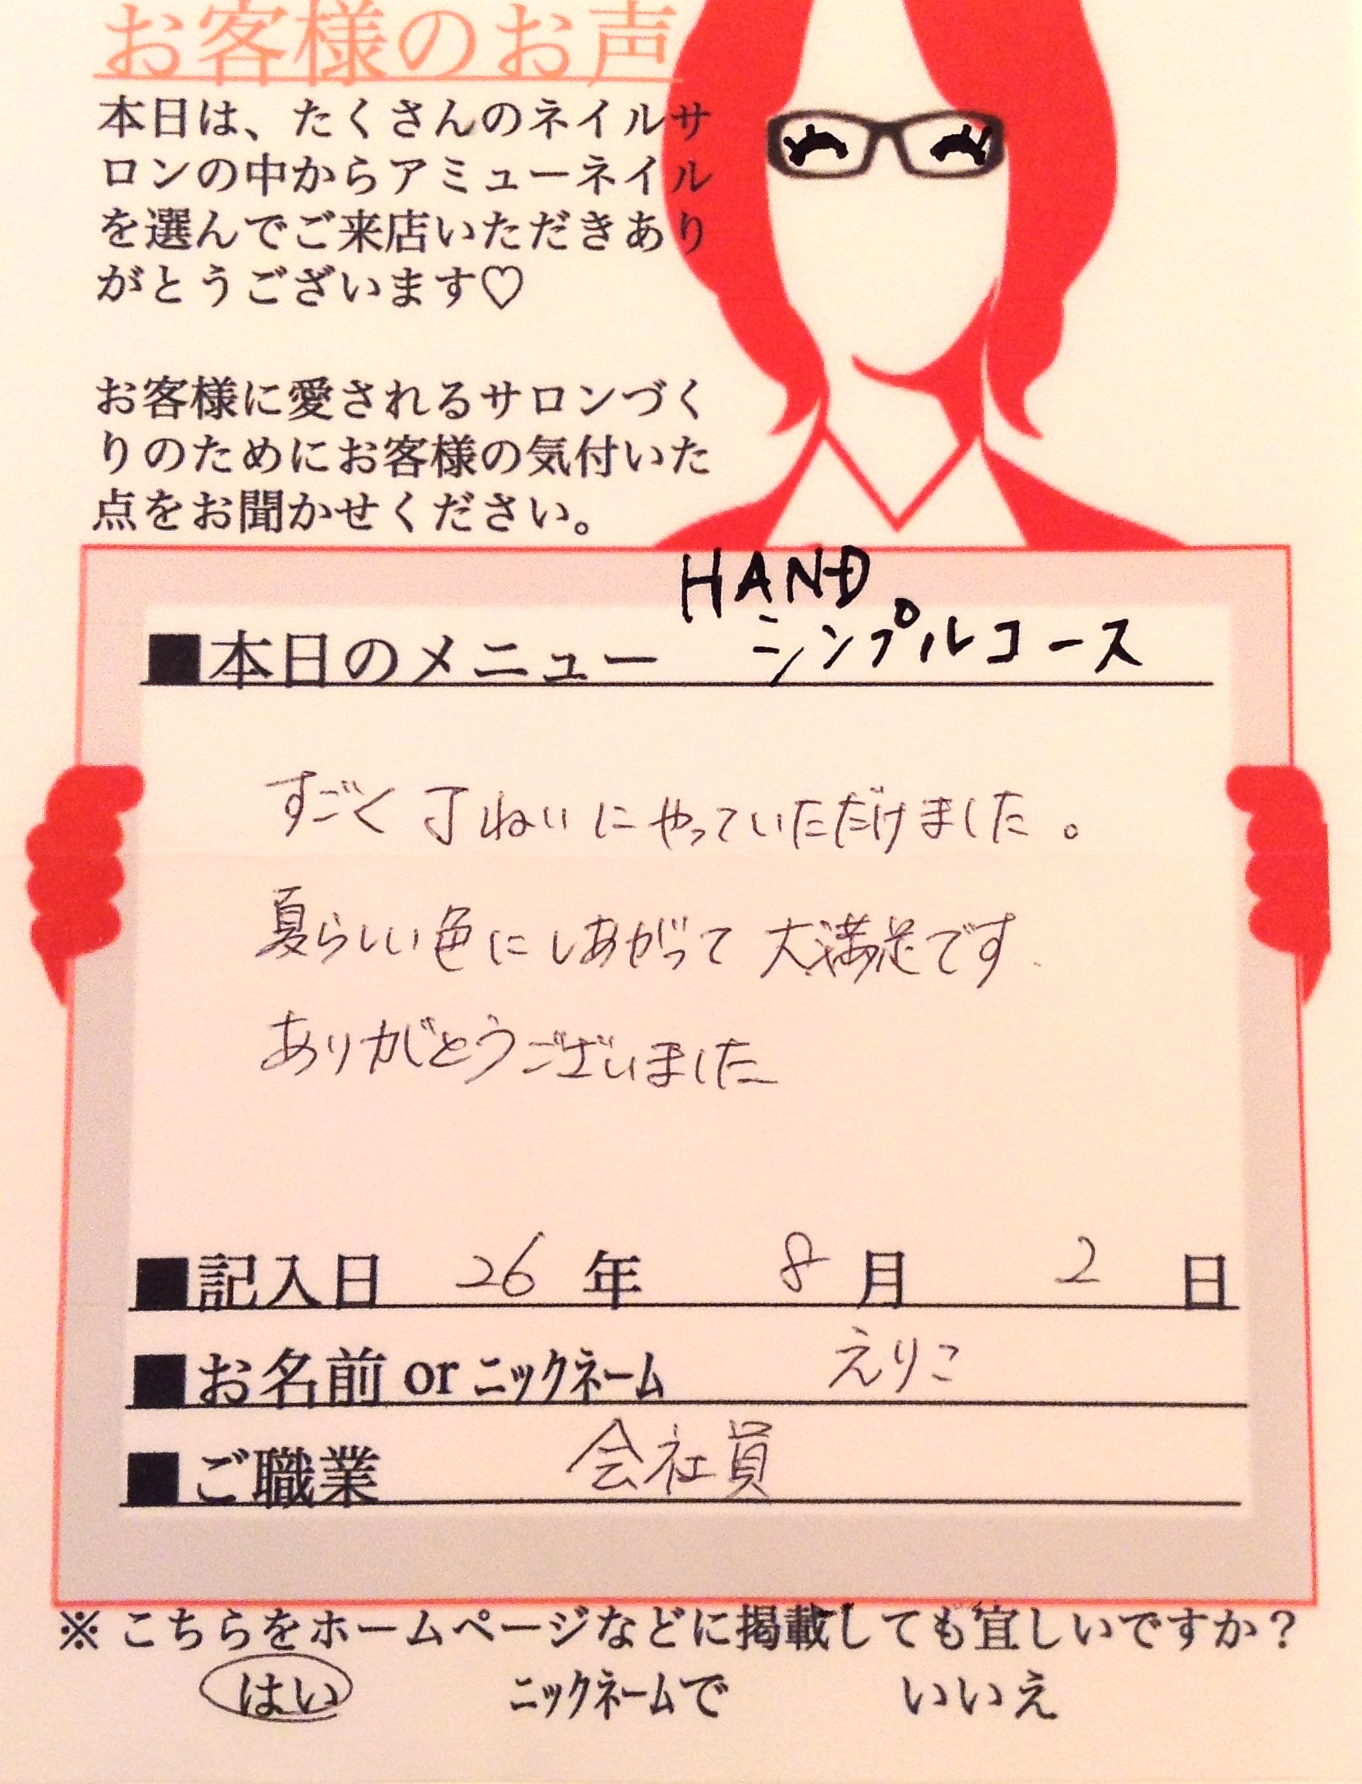 お客様のお声
本日は、たくさんのネイルサ
ロンの中からアミューネイル
を選んでご来店いただきあり
がとうございます♡
お客様に愛されるサロンづく
りのためにお客様の気付いた
点をお聞かせください。
HAND
■本日のメニュー シンプルコース
すごく丁ねいにやっていただけました。
夏らしい色にしあがって大満足です
ありがとうございました
■記入日 26年 8月 2日
■お名前 or ニックネーム えりこ
■ご職業 会社員
※こちらをホームページなどに掲載しても宜しいですか？
はい ニックネームで いいえ